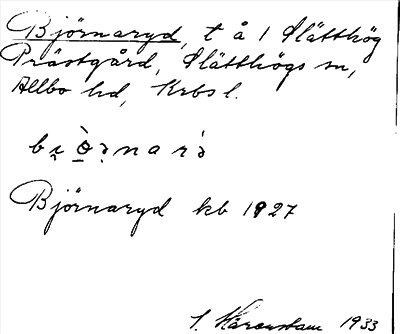 Björnaryd, t å 1 Slätthög
Prästgård, Slätthögs sn,
Allbo hd, Krbs l.
Björnaryd kb 1927
1933